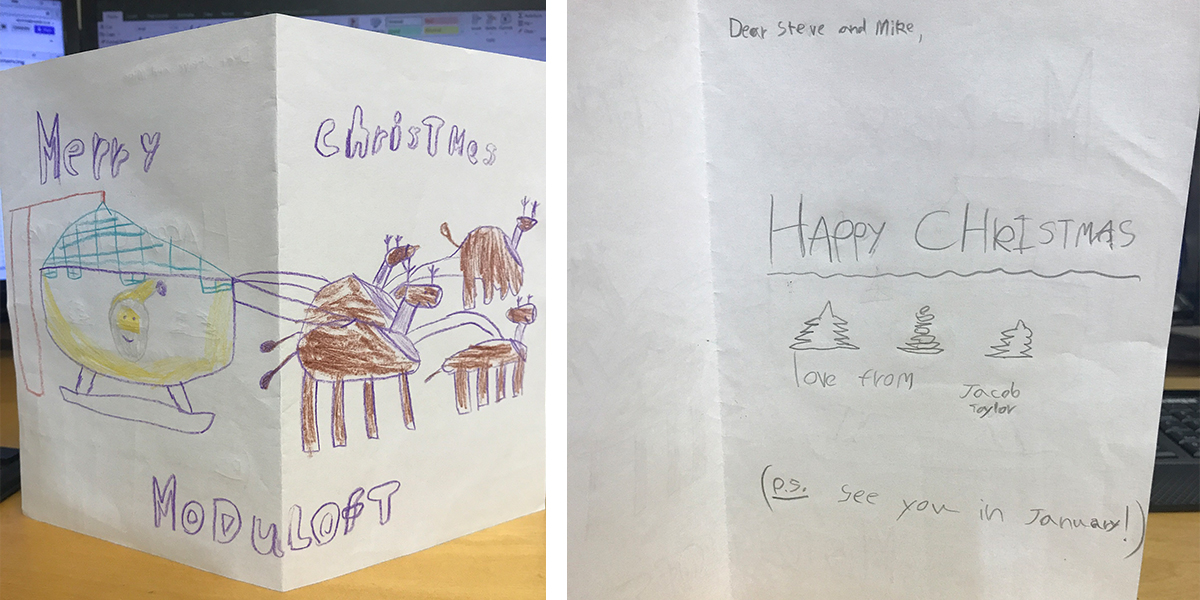 Merry Christmas
MODULOFT
Dear Steve and Mike,
HAPPY CHRISTMAS
love from
Jacob
Taylor
(p.s. see you in January!)